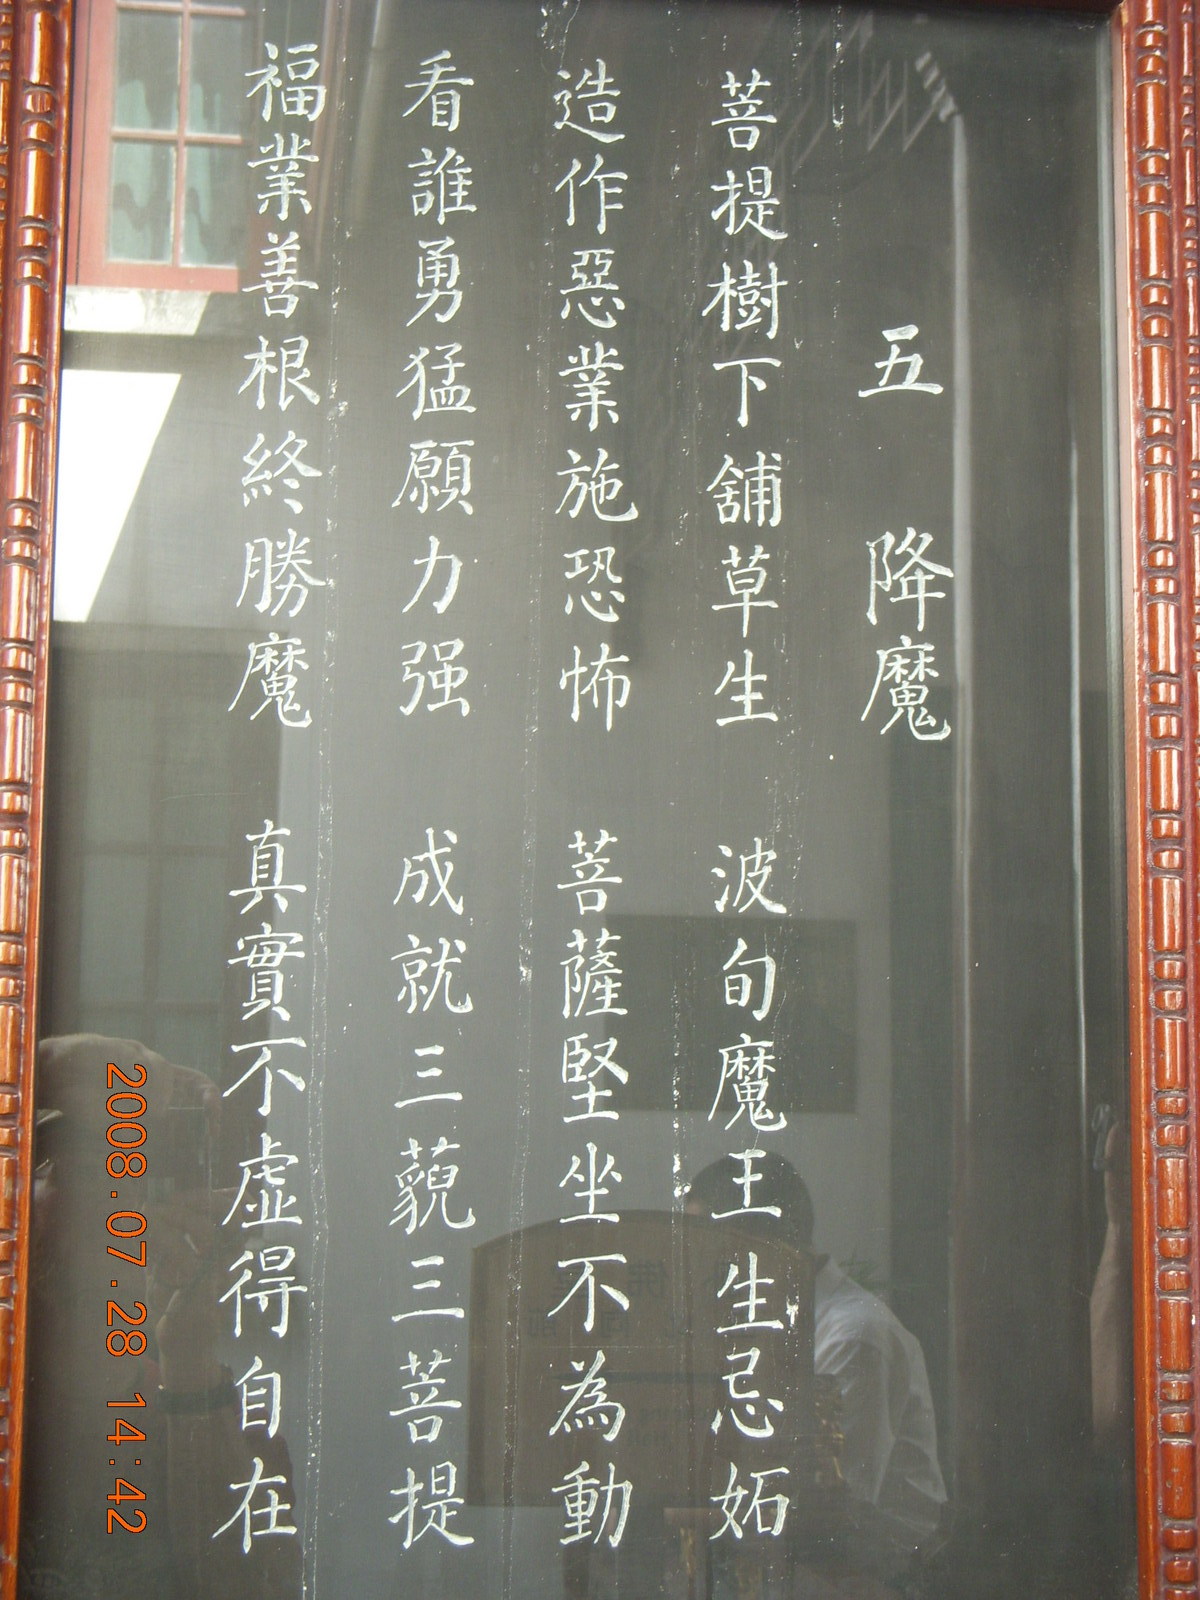 五 降魔
菩提樹下舖草生 波旬魔王生忌妬
造作惡業施恐怖 菩薩堅坐不為動
看誰勇猛願力强 成就三藐三菩提
福業善根終勝魔 真實不虛得自在
2008.07.28 14:42